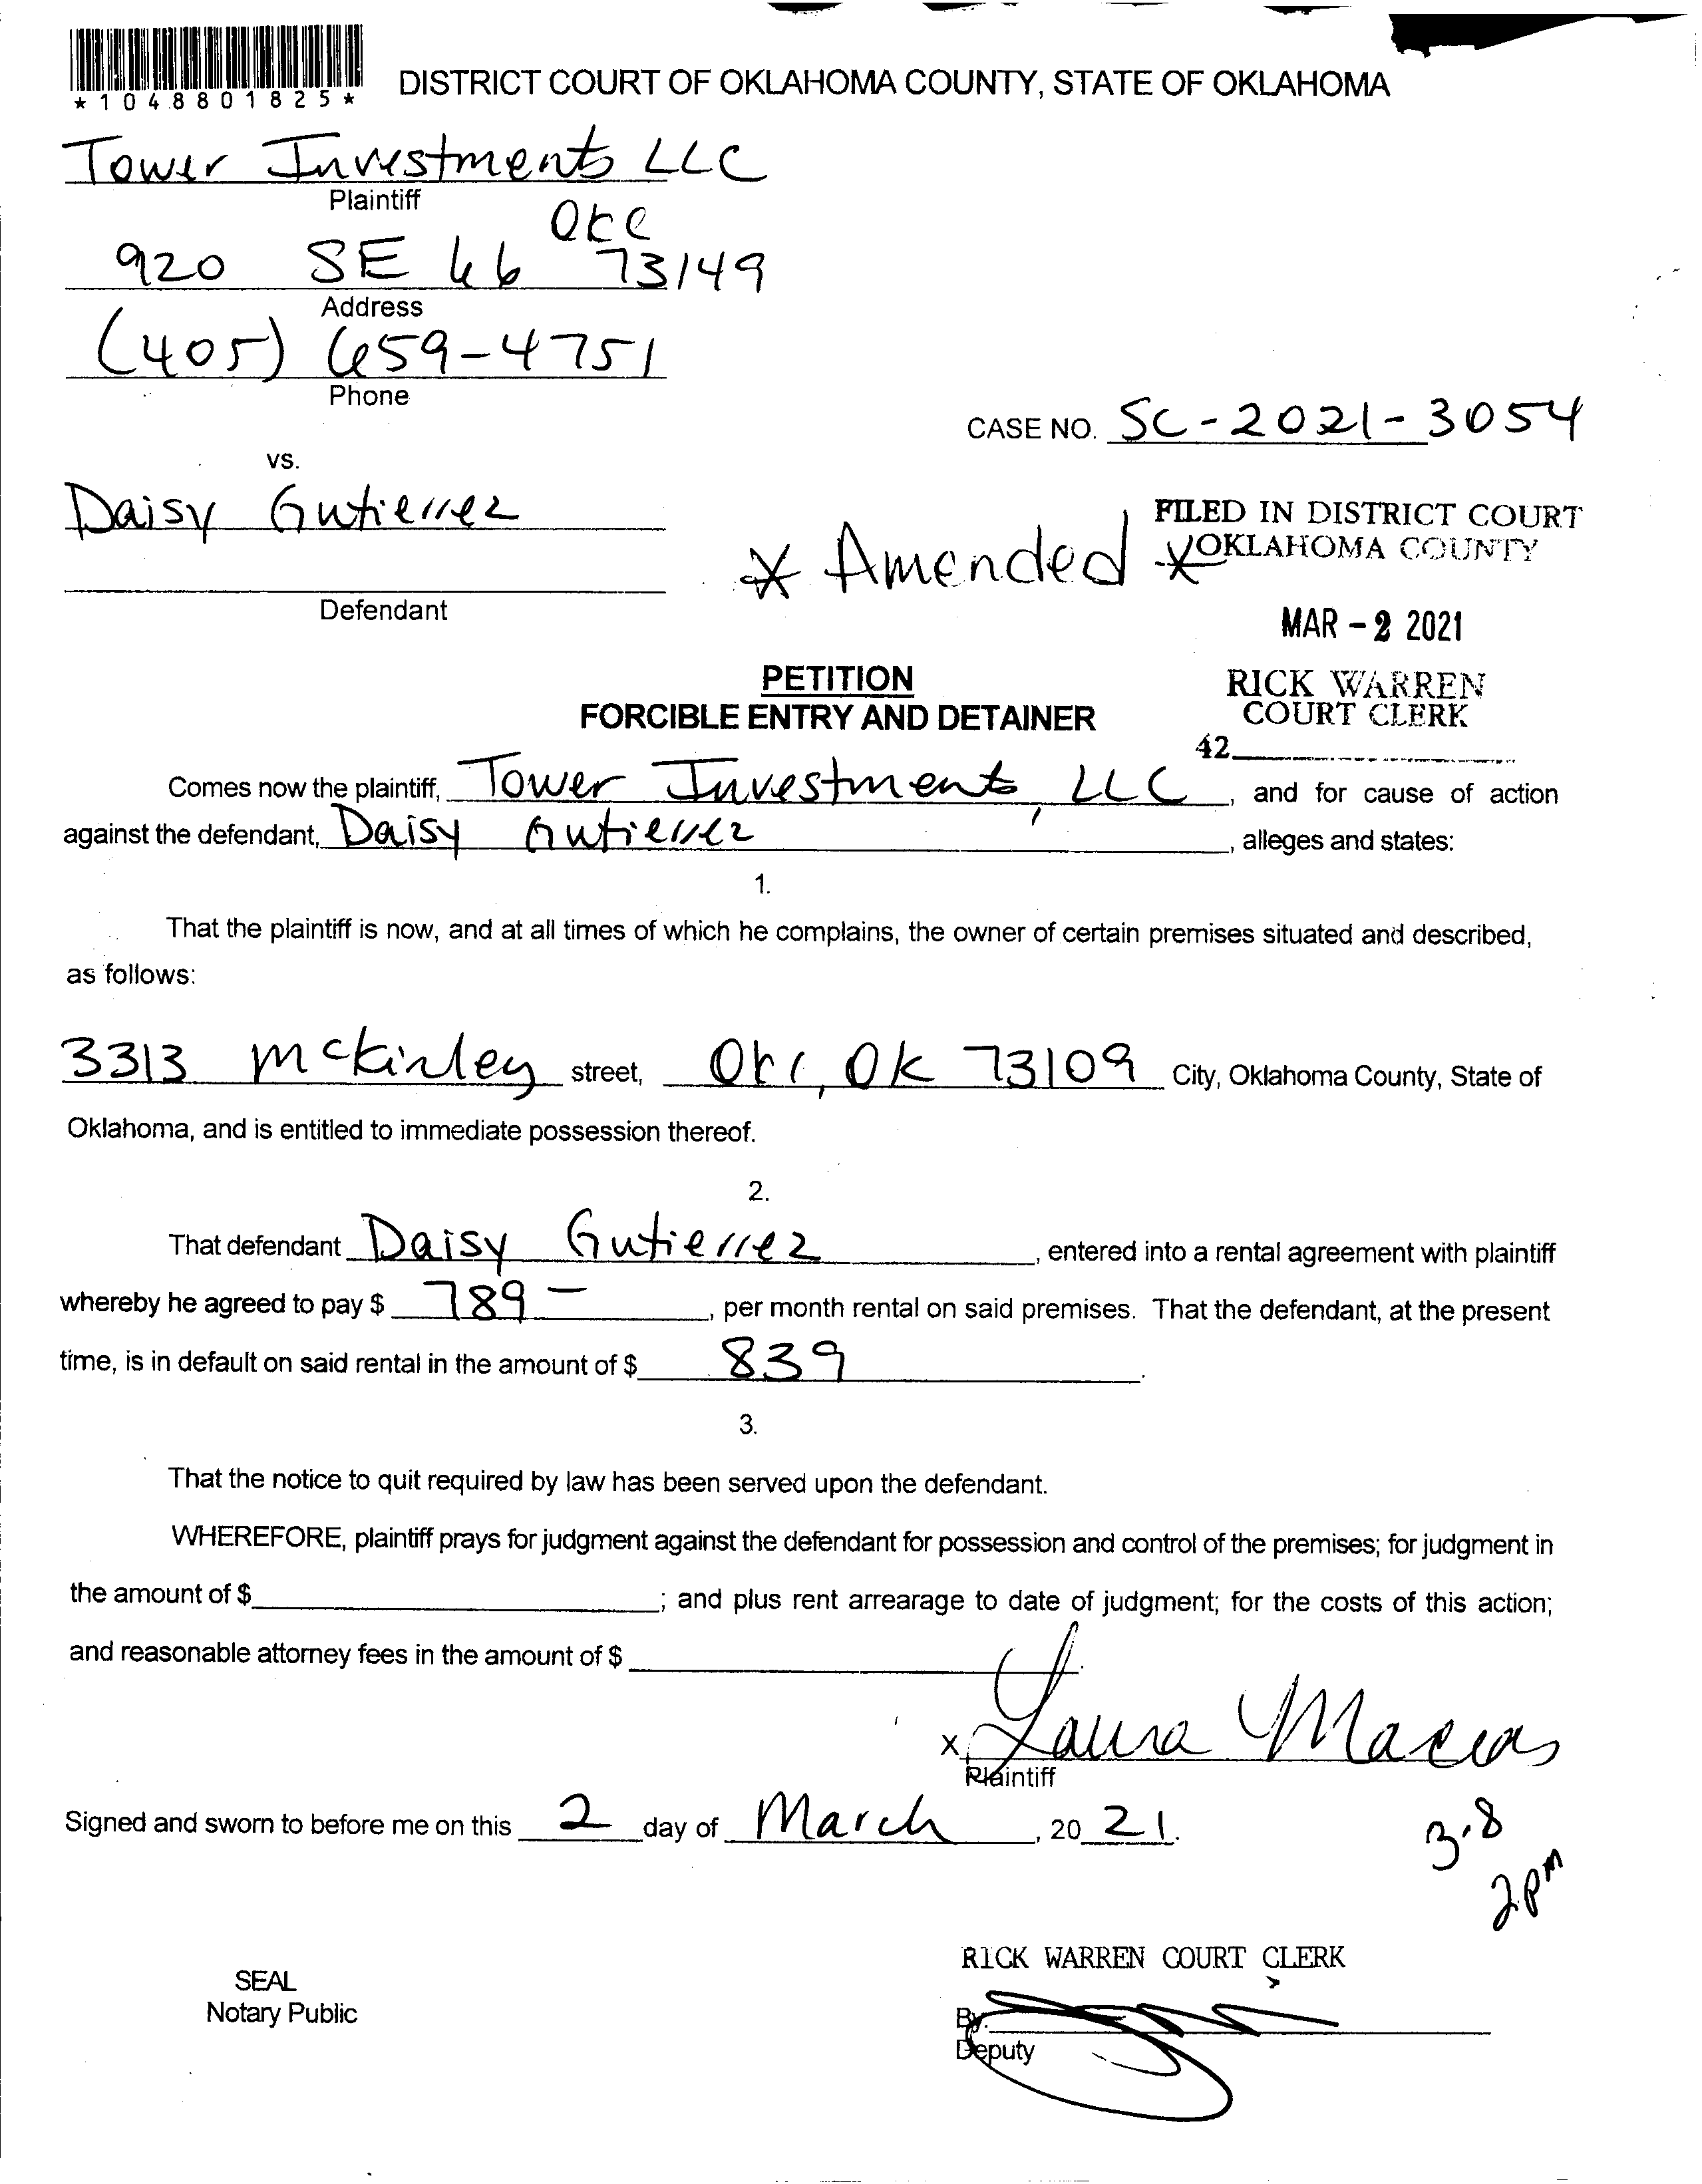 *1048801825*
DISTRICT COURT OF OKLAHOMA COUNTY, STATE OF OKLAHOMA
Tower Investments LLC
Plaintiff
OKC
920 SE 66 73149
Address
(405) 659-4751
Phone
CASE NO. SC-2021-3054
vs.
Daisy Gutierrez
Defendant
* Amended *
FILED IN DISTRICT COURT
OKLAHOMA COUNTY
MAR - 2 2021
RICK WARREN
COURT CLERK
42
PETITION
FORCIBLE ENTRY AND DETAINER
Comes now the plaintiff, Tower Investments, LLC, and for cause of action
against the defendant, Daisy Gutierrez, alleges and states:
1.
That the plaintiff is now, and at all times of which he complains, the owner of certain premises situated and described,
as follows:
3313 McKinley street, OKC, OK 73109 City, Oklahoma County, State of
Oklahoma, and is entitled to immediate possession thereof.
2.
That defendant Daisy Gutierrez, entered into a rental agreement with plaintiff
whereby he agreed to pay $ 789-, per month rental on said premises. That the defendant, at the present
time, is in default on said rental in the amount of $ 839.
3.
That the notice to quit required by law has been served upon the defendant.
WHEREFORE, plaintiff prays for judgment against the defendant for possession and control of the premises; for judgment in
the amount of $ ; and plus rent arrearage to date of judgment; for the costs of this action;
and reasonable attorney fees in the amount of $ .
x Laura Macias
Plaintiff
Signed and sworn to before me on this 2 day of March, 20 21.
3.8
2pm
RICK WARREN COURT CLERK
SEAL
Notary Public
By.
Deputy